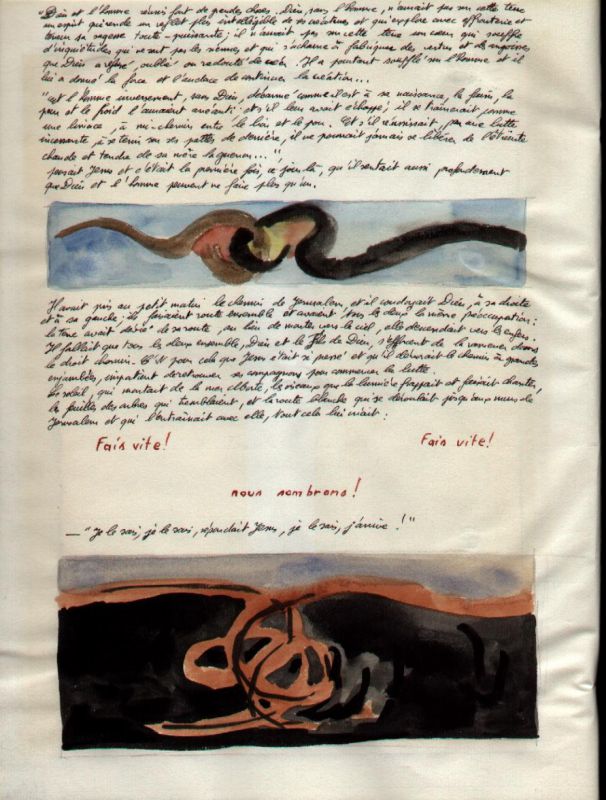 "Dieu et l'homme réunis font de grandes choses. Dieu, sans l'homme, n'aurait pas sur cette terre
un esprit qui rende un reflet plus intelligible de ses créatures et qui explore avec effronterie et
sa sagesse toute-puissante; il n'aurait pas sur cette terre un cœur qui souffre
d'inquiétudes qui ne sont pas les siennes et qui s'acharne à fabriquer des vertus et des angoisses
que Dieu a refusé, oublié ou redouté de créer. Il a pourtant soufflé sur l'homme et il
lui a donné la force et l'audace de continuer la création...
"et l'homme inversement, sans Dieu, désarmé comme il est à sa naissance, la faim, la
peur et le froid l'auraient anéanti. et s'il leur avait échappé, il se traînerait, comme
une limace, à mi-chemin entre le lion et le pou. Et s'il réussissait, par une lutte
incessante, à se tenir sur ses pattes de derrière, il ne pourrait jamais se libérer de l'étreinte
chaude et tendre de sa mère la guenon..."
pensait Jésus et c'était la première fois, ce jour-là, qu'il sentait aussi profondément
que Dieu et l'homme peuvent ne faire plus qu'un.
Il avait pris au petit matin le chemin de Jérusalem, et il coudoyait Dieu, à sa droite
et à sa gauche; ils faisaient route ensemble et avaient tous les deux la même préoccupation:
la terre avait dévié de sa route, au lieu de monter vers le ciel, elle descendait vers les enfers.
Il fallait que tous les deux ensemble, Dieu et le Fils de Dieu, s'efforcent de la ramener dans
le droit chemin. C'est pour cela que Jésus s'était si pressé et qu'il dévorait le chemin à grandes
enjambées, impatient de retrouver ses compagnons pour commencer la lutte.
Le soleil, qui montait de la mer Morte, les oiseaux que la lumière frappait et faisait chanter,
les feuilles des arbres qui tremblaient, et la route blanche qui se déroulait jusqu'aux murs de
Jérusalem et qui l'entraînait avec elle, tout cela lui criait:
Fais vite! Fais vite!
nous sombrons!
— "Je le sais, je le sais, répondait Jésus, je le sais, j'arrive!"